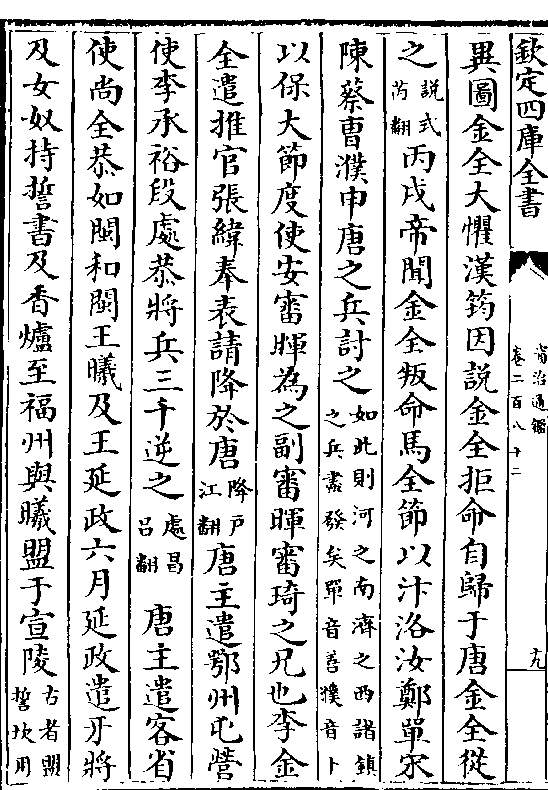 欽定四庫全書
資治通鑑
卷二百八十二
十九
異圖金全大懼漢筠因說金全拒命自歸于唐金全從
之說式芮翻丙戌帝聞金全叛命馬全節以汴洛汝鄭單宋
陳蔡曹濮申唐之兵討之如此則河之南濟之西諸鎮之兵盡發矣單音善濮音卜
以保大節度使安審暉為之副審暉審琦之兄也李金
全遣推官張緯奉表請降於唐降戶江翻唐主遣鄂州屯營
使李承裕段處恭將兵三千逆之處昌呂翻 唐主遣客省
使尚全恭如閩和閩王曦及王延政六月延政遣牙將
及女奴持誓書及香爐至福州與曦盟于宣陵古者盟誓坎用